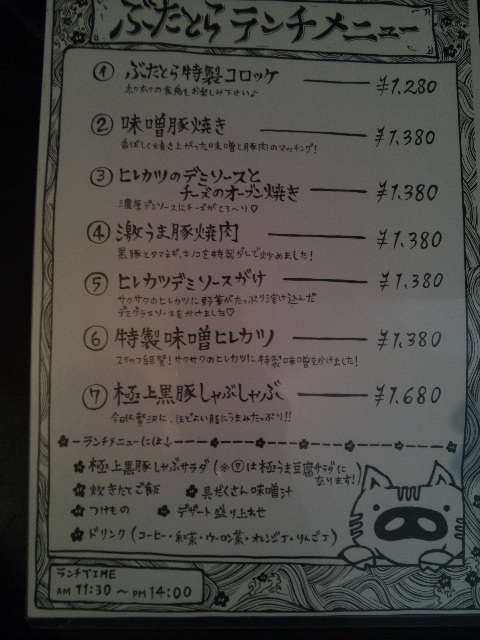 ぶたとら ランチメニュー
① ぶたとら特製コロッケ ¥1,280
ホクホクの食感をお楽しみ下さい♪
② 味噌豚焼き ¥1,380
香ばしく焼き上がった味噌と豚肉のマッチング!
③ ヒレカツのデミソースと
チーズのオーブン焼き ¥1,380
濃厚デミソースにチーズがとろ〜り♡
④ 激うま豚焼肉 ¥1,380
黒豚とタマネギ、キノコを特製ダレで炒めました!
⑤ ヒレカツデミソースがけ ¥1,380
サクサクのヒレカツに野菜がたっぷり溶け込んだ
デミグラスソースをかけました♡
⑥ 特製味噌ヒレカツ ¥1,380
スタッフ絶賛!サクサクのヒレカツに特製味噌をかけました!
⑦ 極上黒豚しゃぶしゃぶ ¥1,680
今日は贅沢に、ほどよい脂にうまみたっぷり!!
ランチメニューには↓
極上黒豚しゃぶサラダ (※⑦は極うま豆腐サラダに
なります!)
炊きたてご飯 具だくさん味噌汁
つけもの デザート盛り合わせ
ドリンク (コーヒー・紅茶・ウーロン茶・オレンジJ・りんごJ)
ランチTIME
AM 11:30 〜 PM 14:00